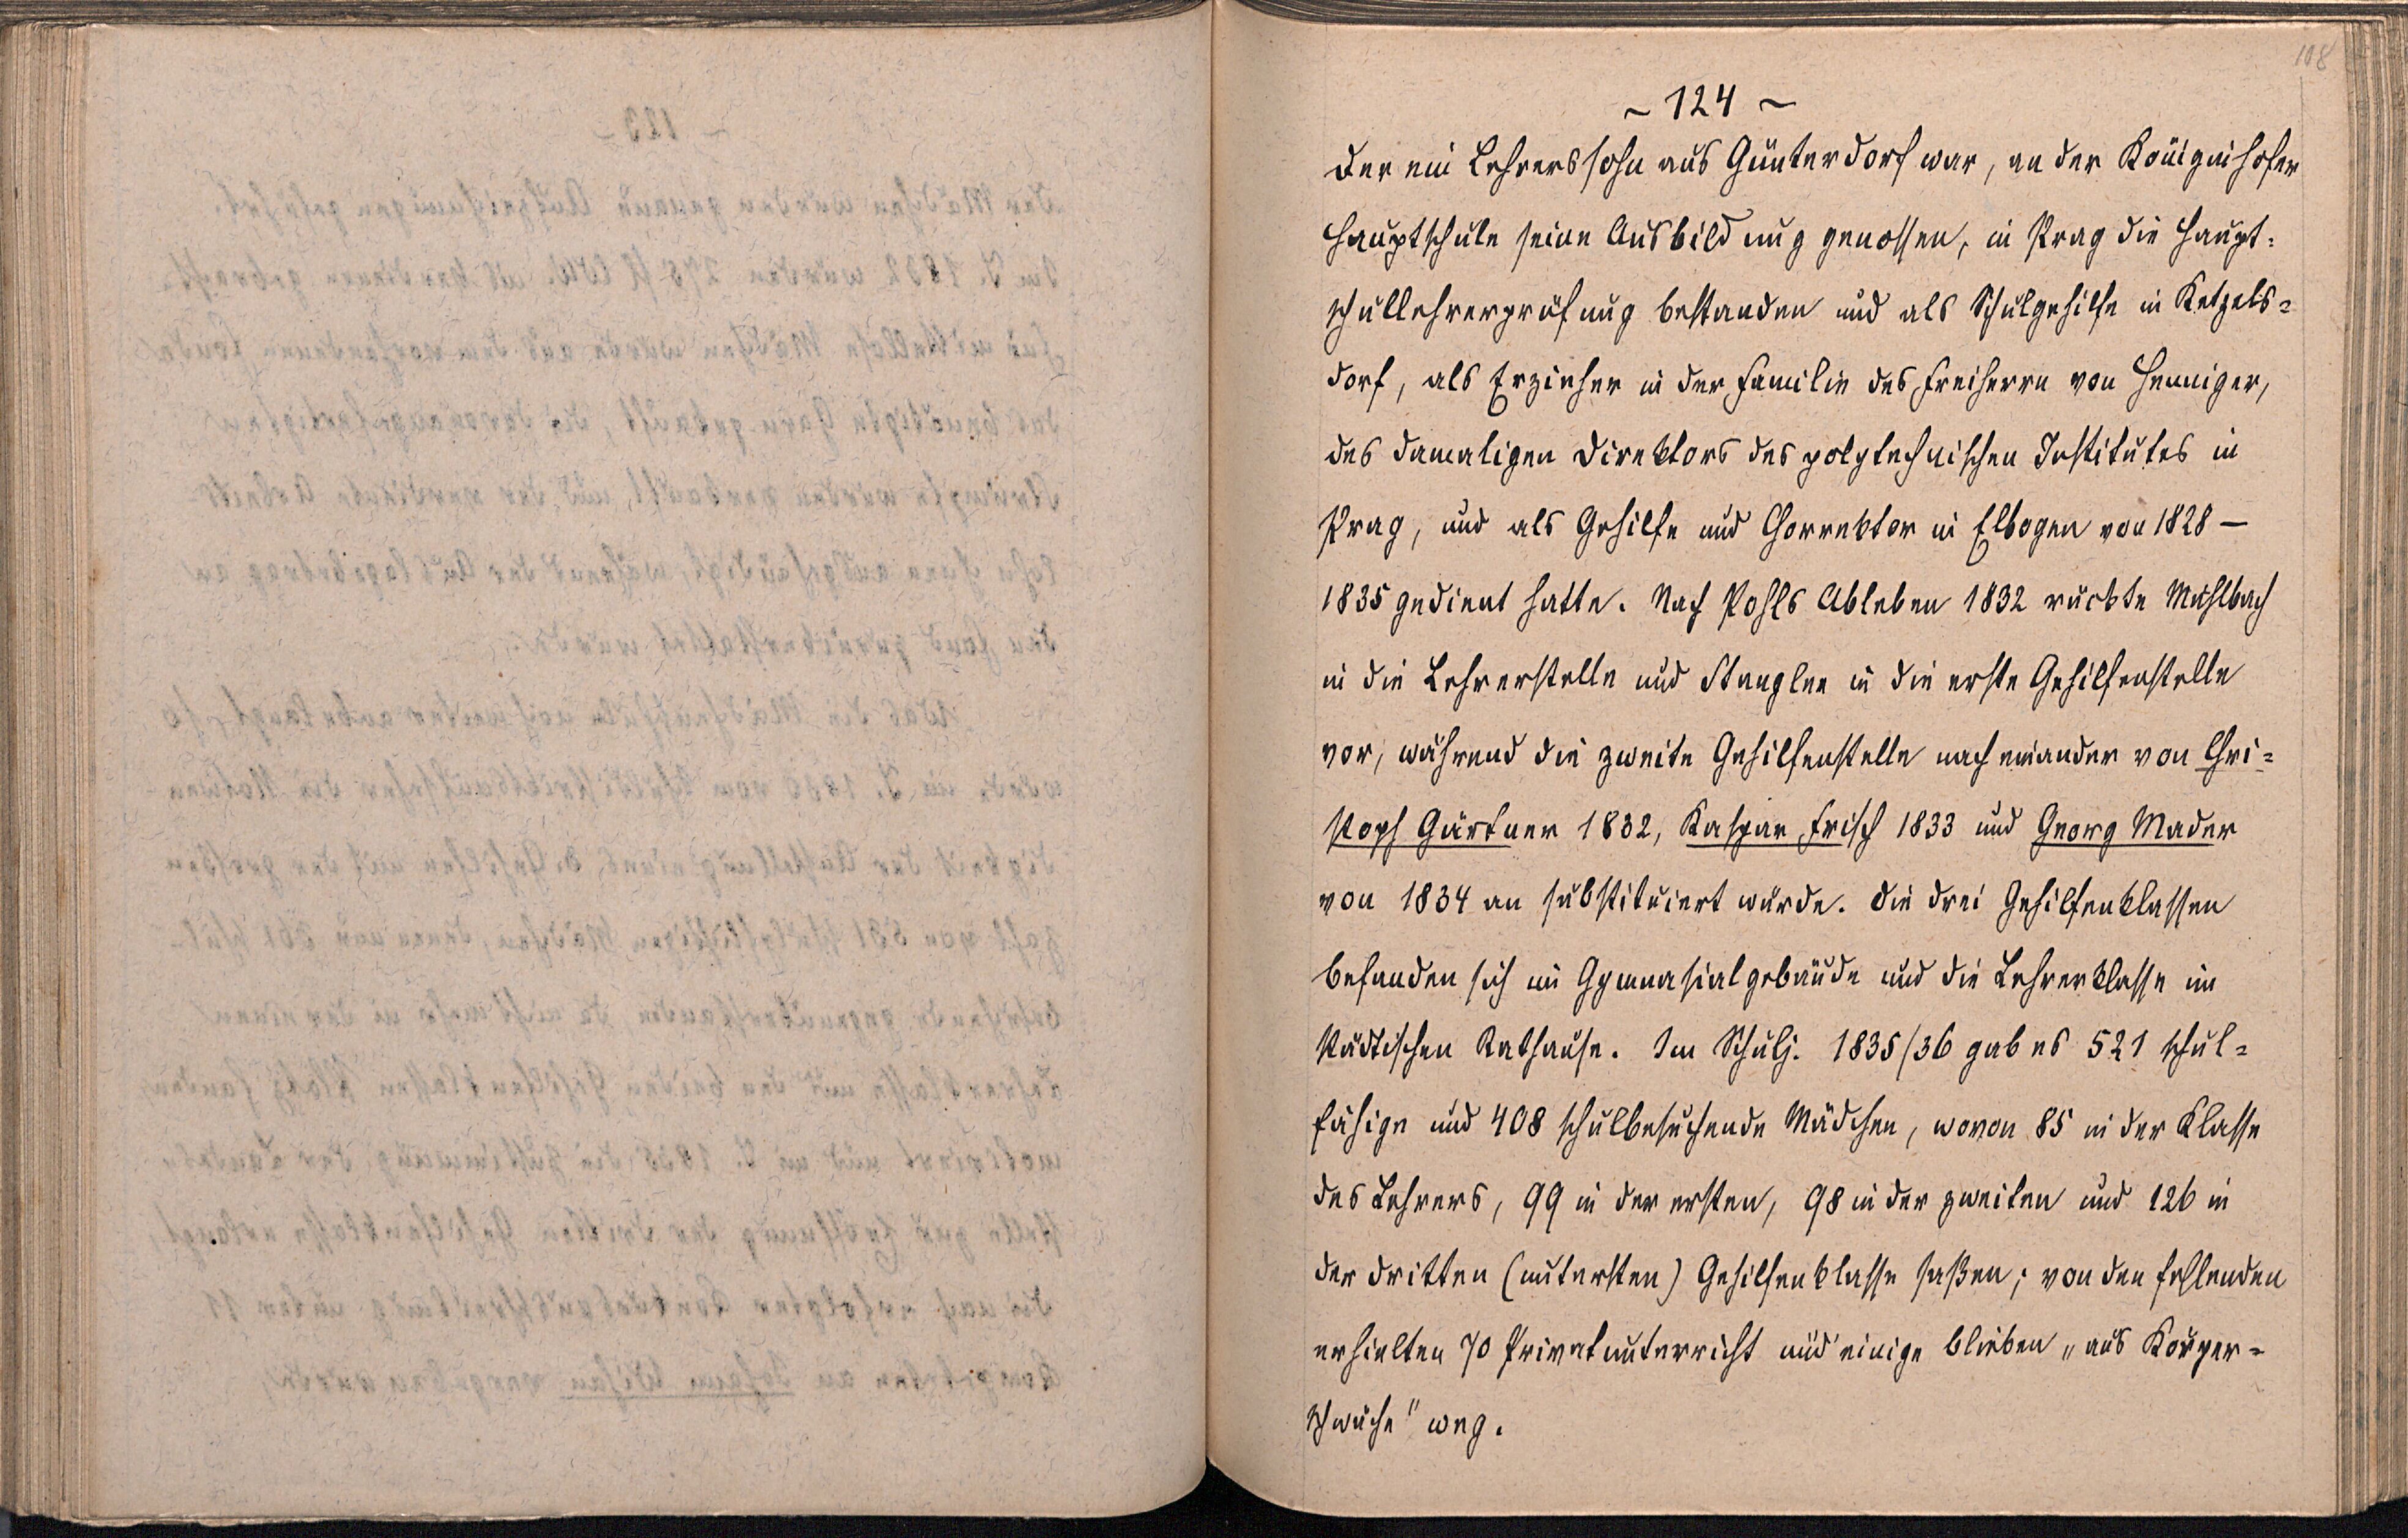 108
~ 124 ~
der ein Lehrerssohn aus Günterdorf war, an der Königinhofer
Hauptschule seine Ausbildung genossen, in Prag die Haupt-
schullehrerprüfung bestanden und als Schulgehilfe in Ketzels-
dorf, als Erzieher in der Familie des Freiherrn von Henniger,
des damaligen Direktors des polytechnischen Institutes in
Prag, und als Gehilfe und Chorrektor in Elbogen von 1828 —
1835 gedient hatte. Nach Pohls Ableben 1832 rückte Mühlbach
in die Lehrerstelle und Stangler in die erste Gehilfenstelle
vor, während die zweite Gehilfenstelle nach einander von Chri-
stoph Gärtner 1832, Kaspar Frisch 1833 und Georg Mader
von 1834 an substituiert wurde. Die drei Gehilfenklassen
befanden sich im Gymnasialgebäude und die Lehrerklasse im
städtischen Rathause. Im Schulj. 1835/36 gab es 521 schul-
fähige und 408 schulbesuchende Mädchen, wovon 85 in der Klasse
des Lehrers, 99 in der ersten, 98 in der zweiten und 126 in
der dritten (untersten) Gehilfenklasse saßen; von den fehlenden
erhielten 70 Privatunterricht und einige blieben „aus Körper-
schwäche" weg.